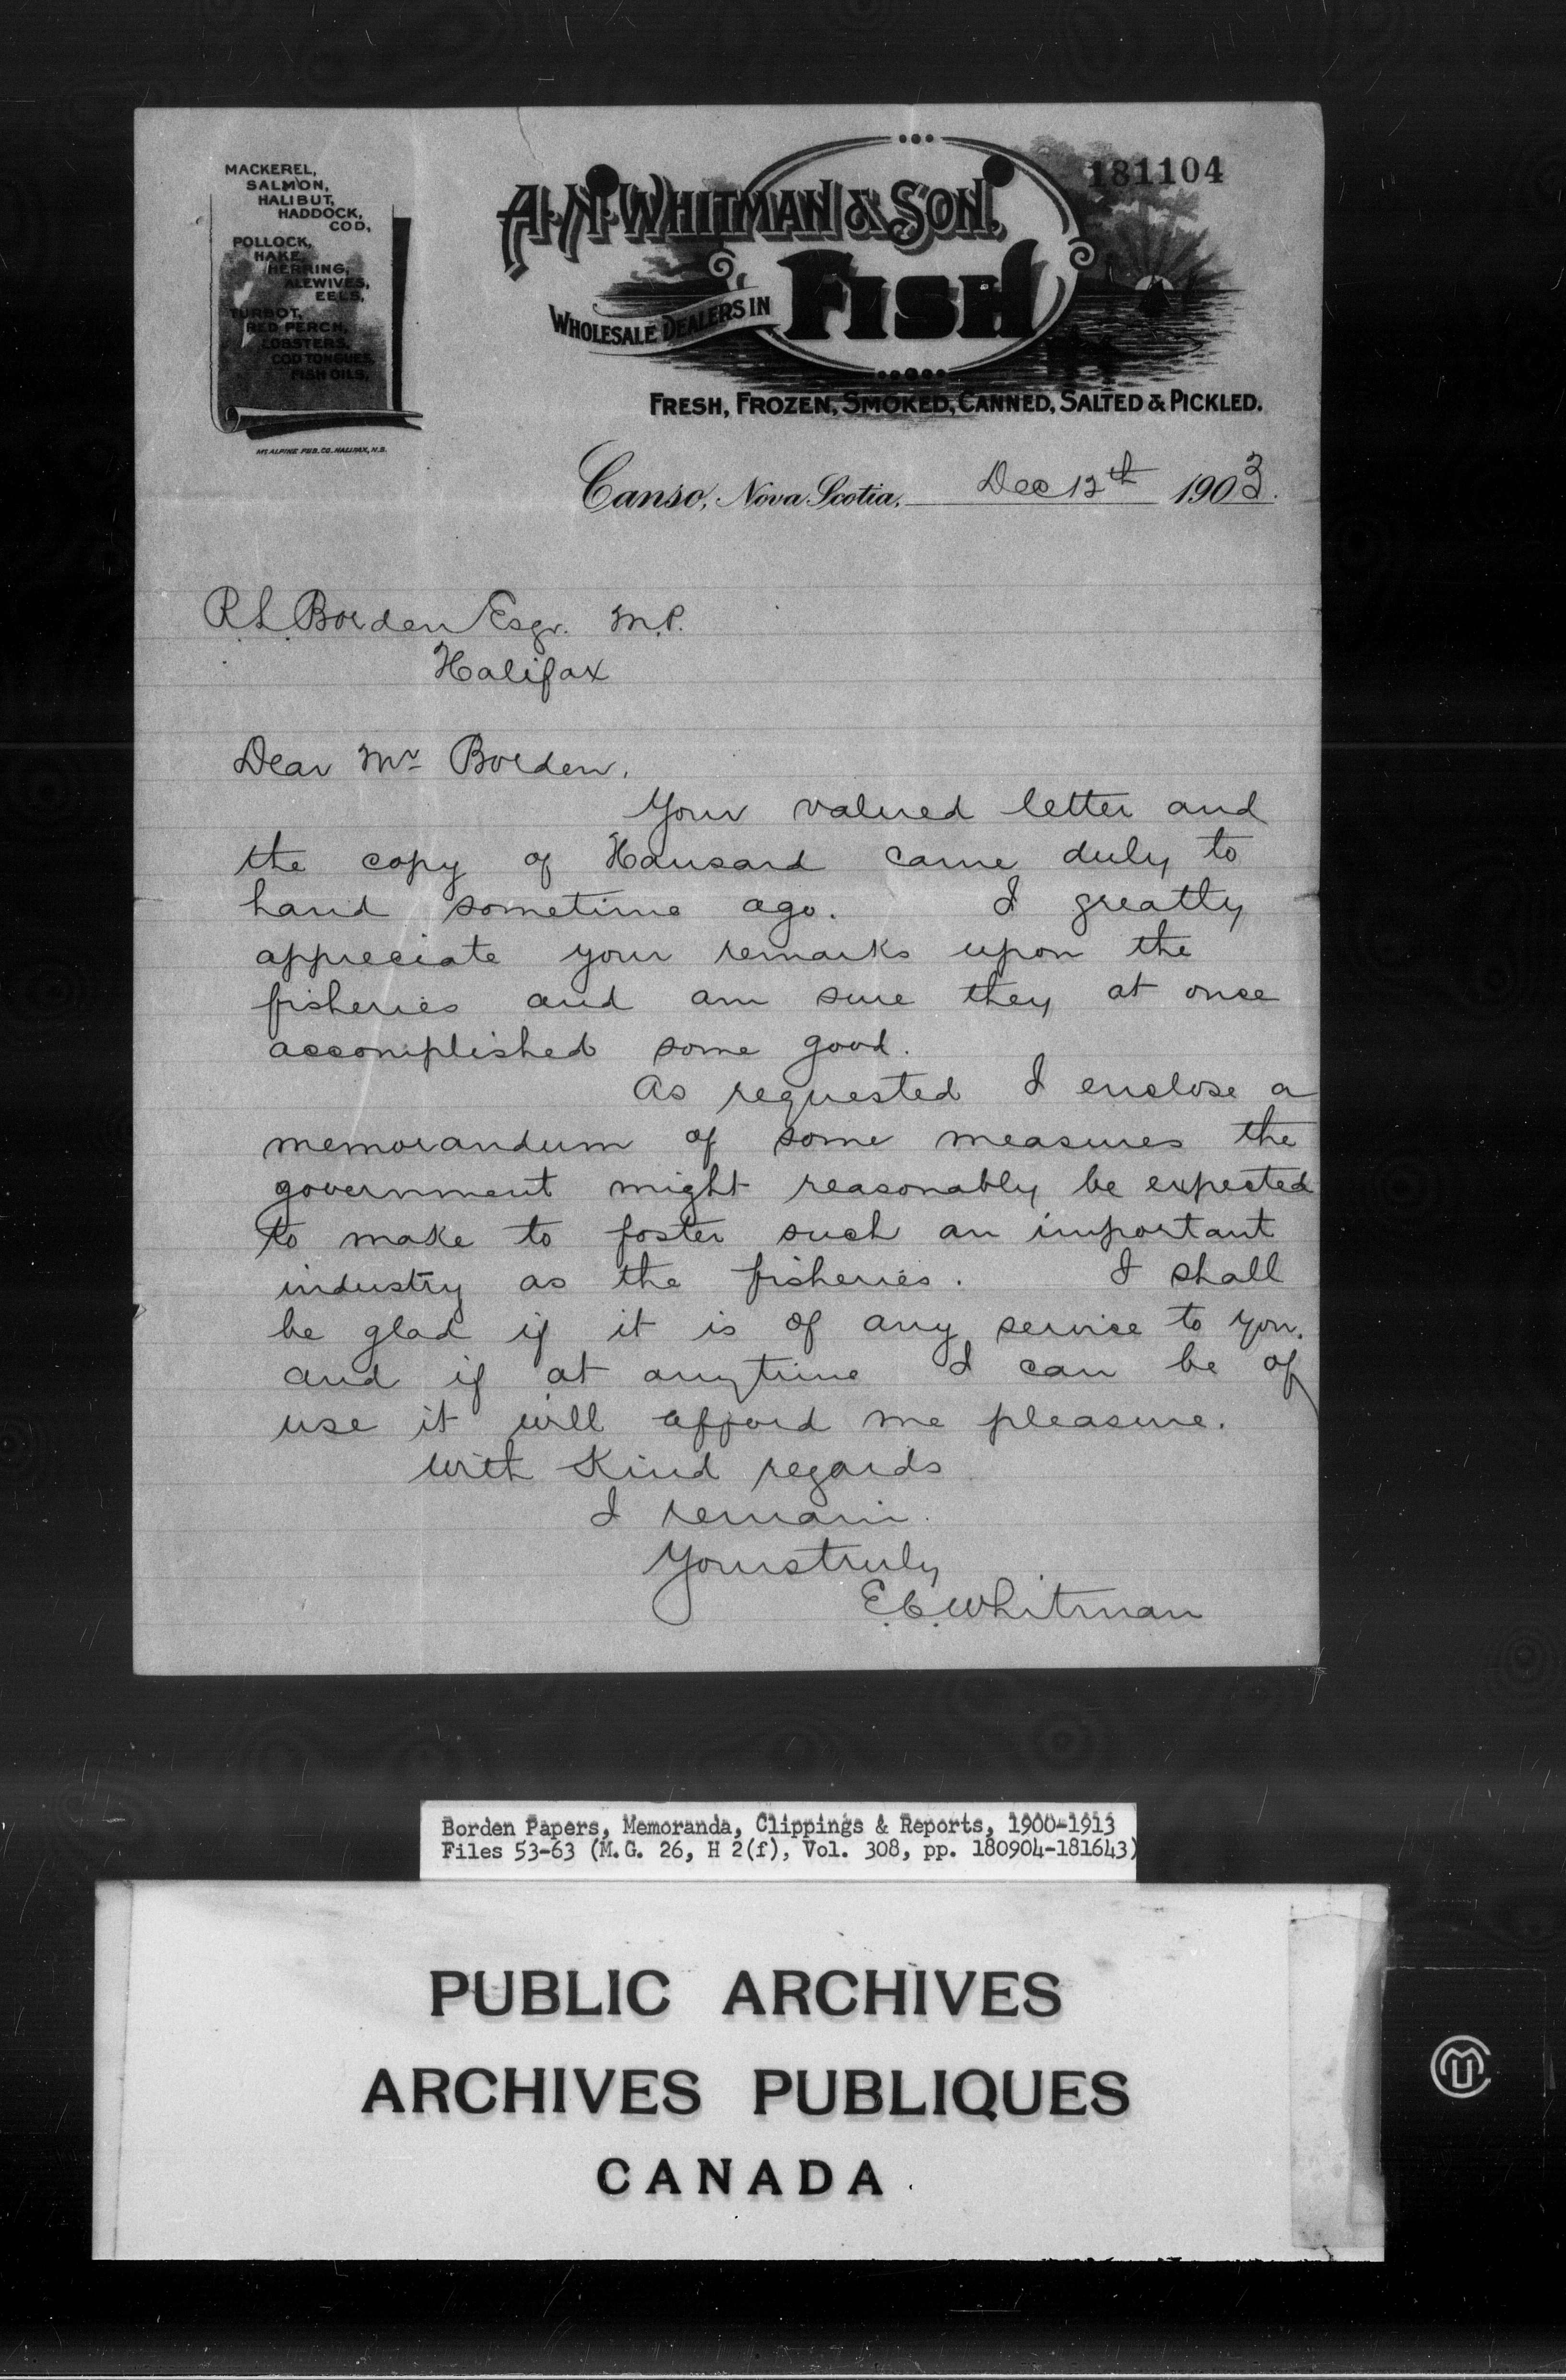 MACKEREL,
SALMON,
HALIBUT,
HADDOCK,
COD,
POLLOCK,
HAKE,
HERRING,
ALEWIVES,
EELS,
TURBOT,
RED PERCH,
LOBSTERS,
COD TONGUES,
FISH OILS,
MCALPINE PUB. CO. HALIFAX, N.S.
181104
A. N. WHITMAN & SON.
WHOLESALE DEALERS IN
FISH
FRESH, FROZEN, SMOKED, CANNED, SALTED & PICKLED.
Canso, Nova Scotia, Dec 12th 1903.
R. L. Borden Esqr. M.P.
Halifax
Dear Mr Borden,
Your valued letter and
the copy of Hansard came duly to
hand sometime ago. I greatly
appreciate your remarks upon the
fisheries and am sure they at once
accomplished some good.
As requested I enclose a
memorandum of some measures the
government might reasonably be expected
to make to foster such an important
industry as the fisheries. I shall
be glad if it is of any service to you.
and if at anytime I can be of
use it will afford me pleasure.
With Kind regards
I remain.
Yourstruly
E. C. Whitman
Borden Papers, Memoranda, Clippings & Reports, 1900-1913
Files 53-63 (M.G. 26, H 2(f), Vol. 308, pp. 180904-181643)
PUBLIC ARCHIVES
ARCHIVES PUBLIQUES
CANADA